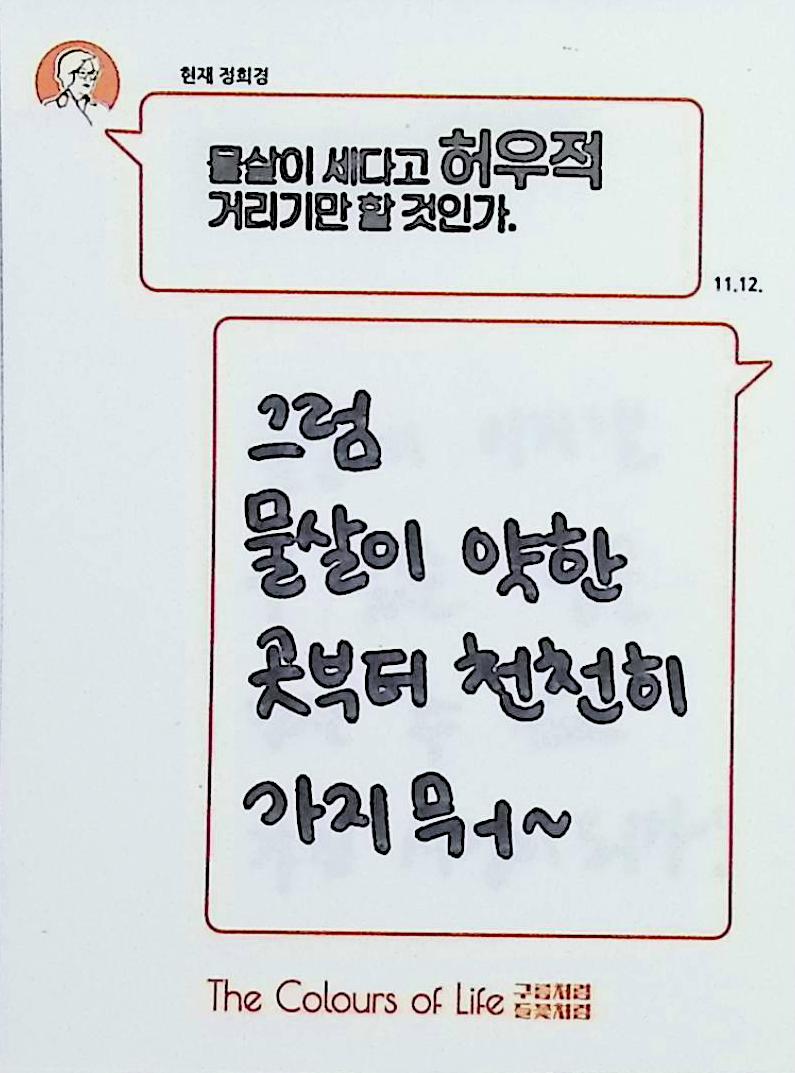 현재 정희경
물살이 세다고 허우적
거리기만 할 것인가.
11.12.
그럼
물살이 약한
곳부터 천천히
가지 뭐~
The Colours of Life 구름처럼
들꽃처럼